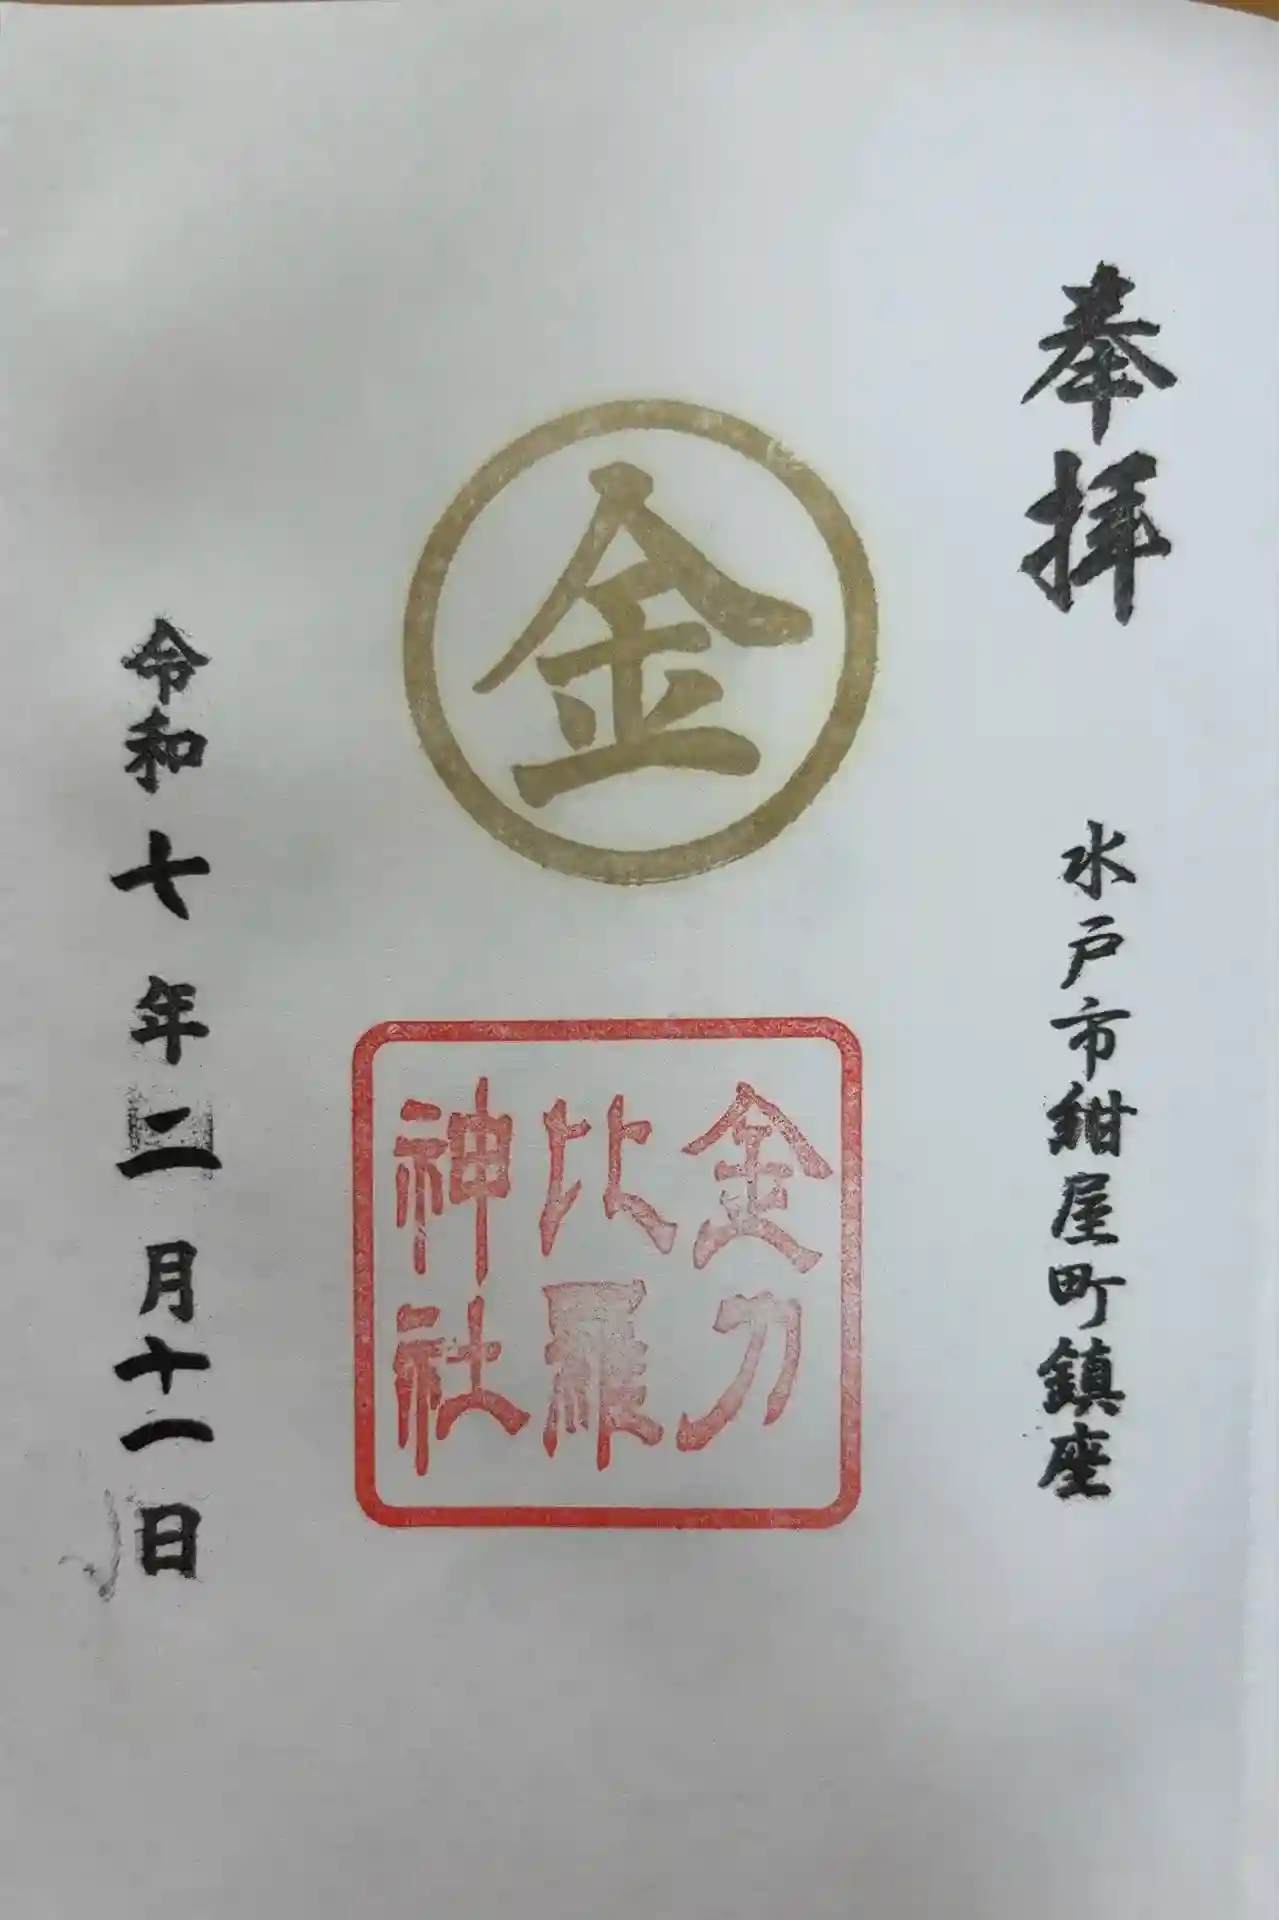 奉拝
水戸市紺屋町鎮座
金
金刀
比羅
神社
令和七年二月十一日